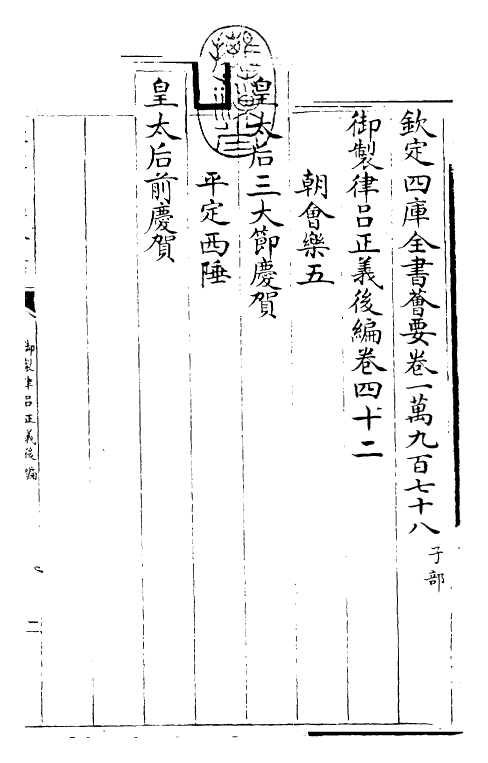 欽定四庫全書薈要卷一萬九百七十八 子部
御製律呂正義後編卷四十二
朝會樂五
皇太后三大節慶賀
平定西陲
皇太后前慶賀
御製律呂正義後編